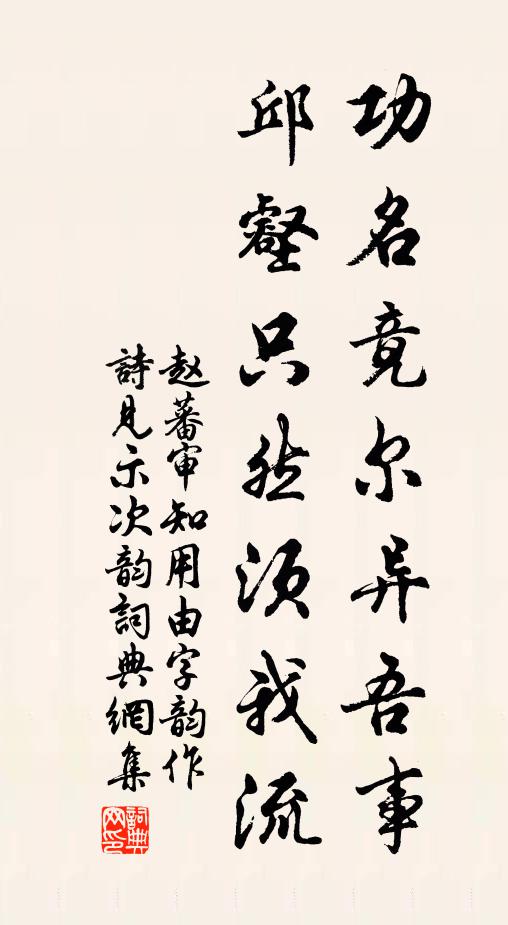 功名竟尔异吾事
邱壑只然须我流
赵蕃审知用由字韵作
詩見示次韵詞典網集
詞典网印